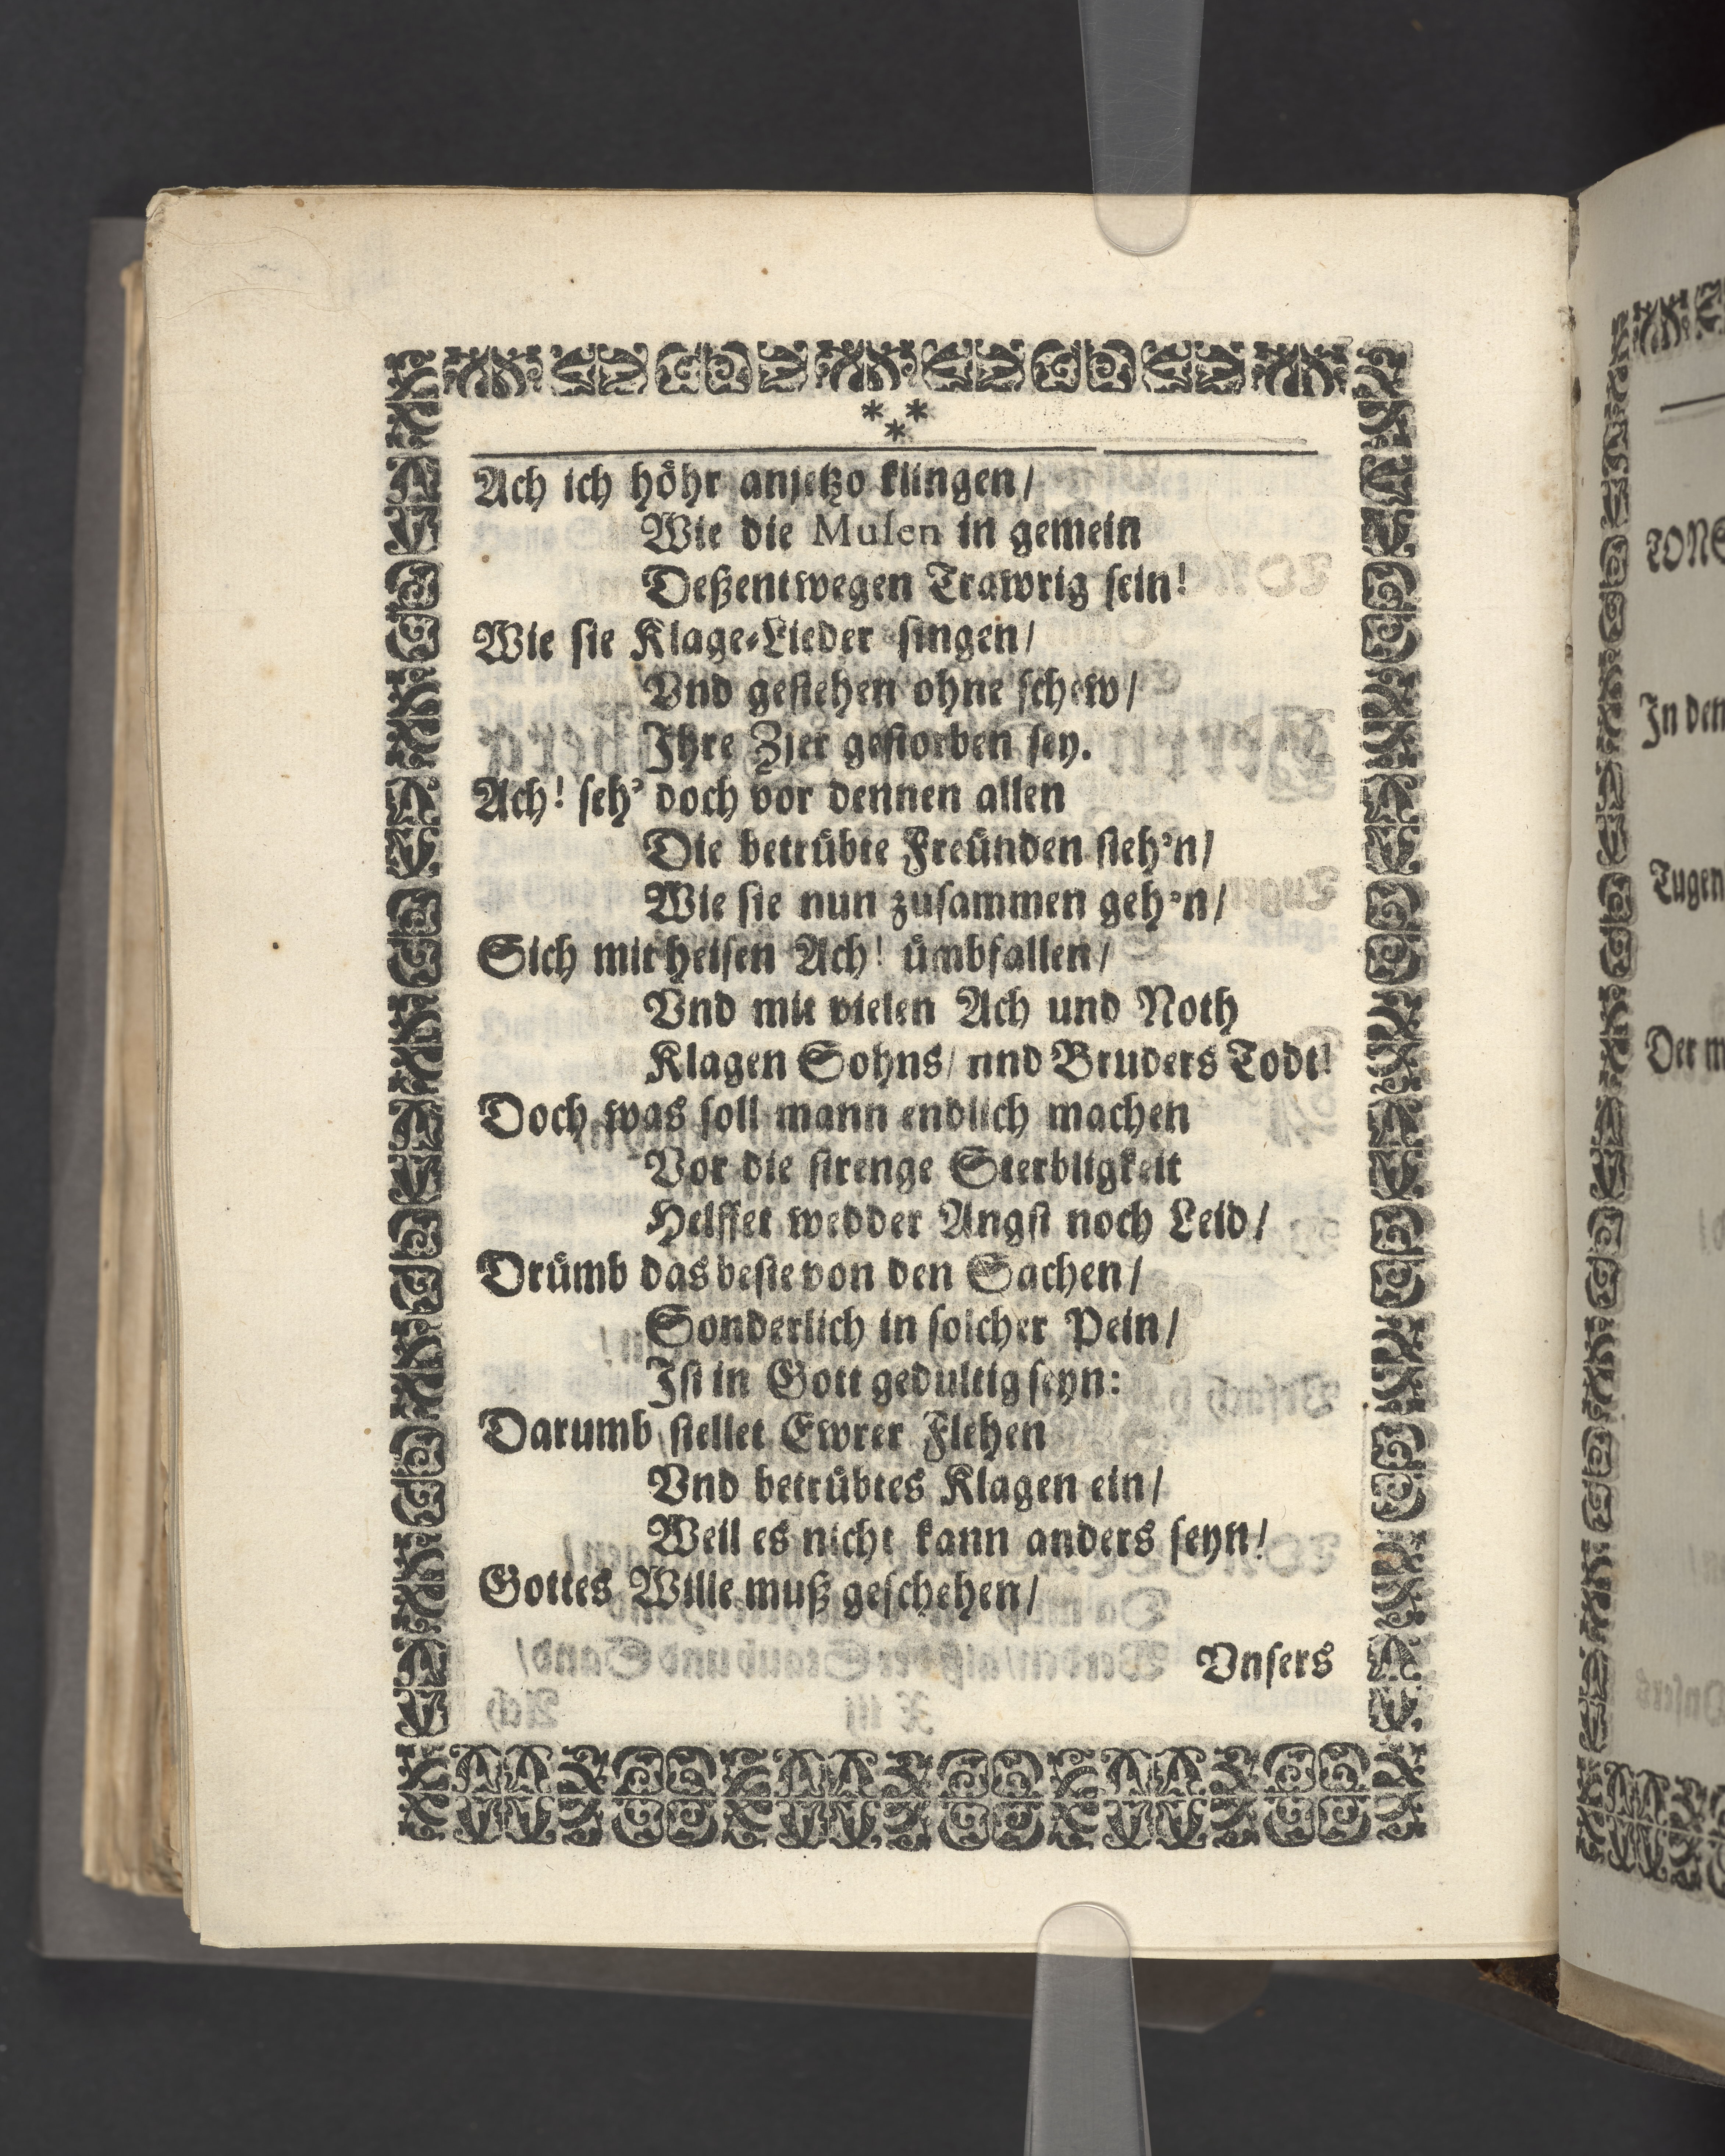 * *
*
Ach ich höhr anjetzo klingen/
Wie die Musen in gemein
Deßentwegen Trawrig sein!
Wie sie Klage-Lieder singen/
Vnd gestehen ohne schew/
Ihre Zier gestorben sey.
Ach! seh' doch vor dennen allen
Die betrübte Freünden steh'n/
Wie sie nun zusammen geh'n/
Sich mit heisen Ach! ümbfallen/
Vnd mit vielen Ach und Noth
Klagen Sohns/ nnd Bruders Todt!
Doch was soll mann endlich machen
Vor die strenge Sterbligkeit
Helffet wedder Angst noch Leid/
Drümb das beste von den Sachen/
Sonderlich in solcher Pein/
Ist in Gott gedultig seyn:
Darumb stellet Ewrer Flehen
Vnd betrübtes Klagen ein/
Weil es nicht kann anders seyn!
Gottes Wille muß geschehen/
Vnsers
In den
Tugen
Der m